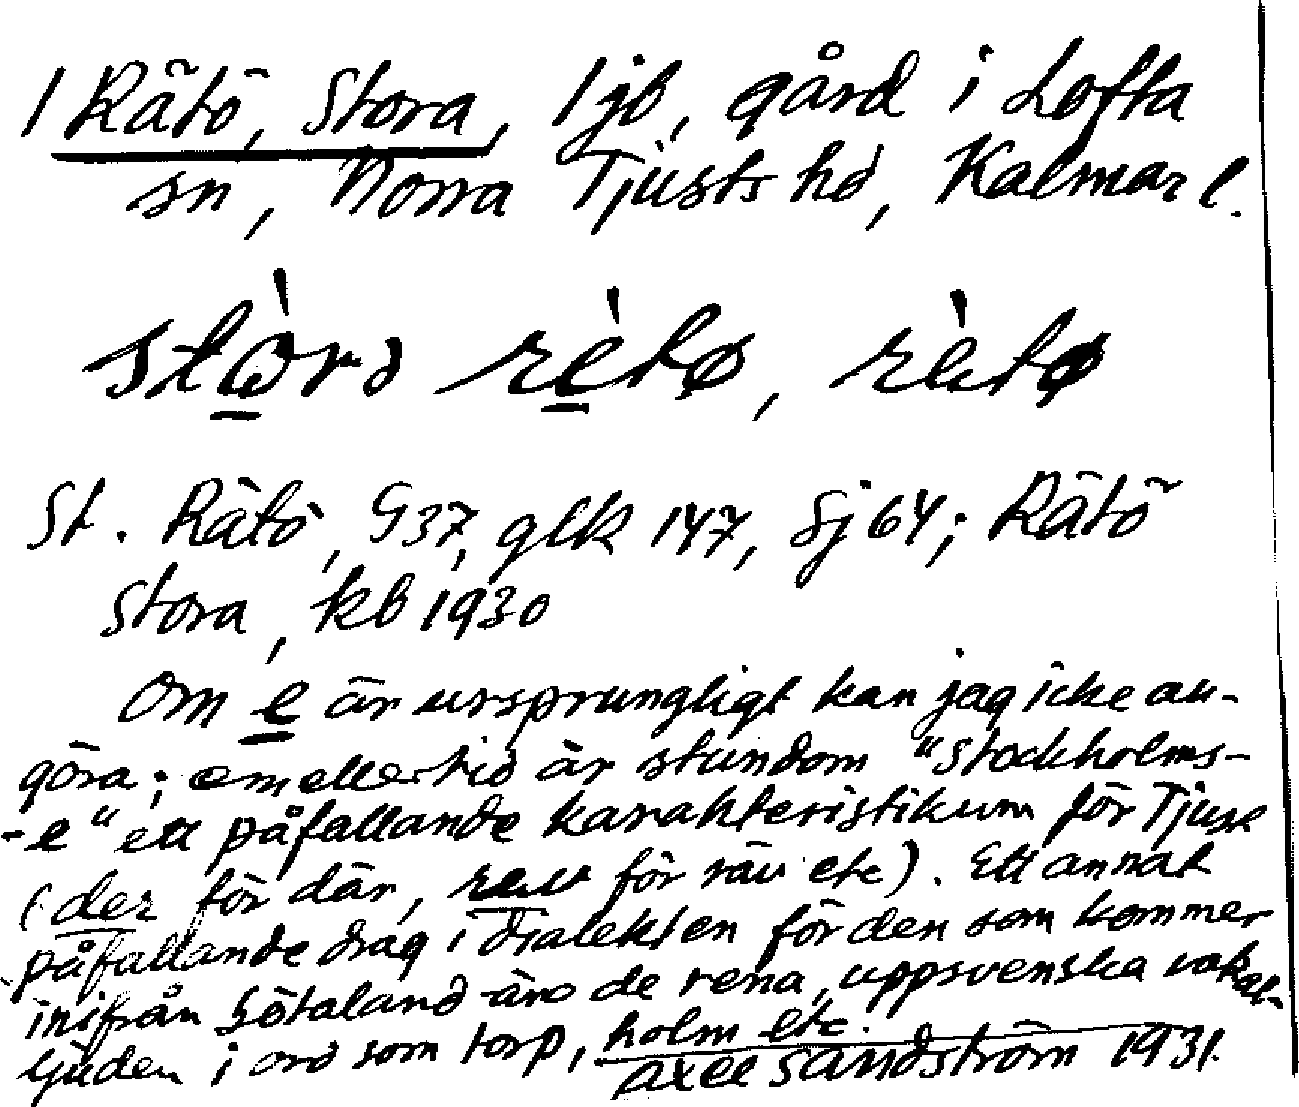 1 Rätö, Stora, 1 jb, gård i Lofta
sn, Norra Tjusts hd, Kalmar l.
stòrə rètø, rètø
St. Rätö, G37, glk 147, Sj 64; Rätö
Stora, kb 1930
Om e är ursprungligt kan jag icke av-
göra; emellertid är stundom "Stockholms-
-e" ett påfallande karakteristikum för Tjust
(der för där, rev för räv etc). Ett annat
påfallande drag i dialekten för den som kommer
inifrån Götaland äro de rena, uppsvenska vokal-
ljuden i ord som torp, holm etc.
Axel Sandström 1931.